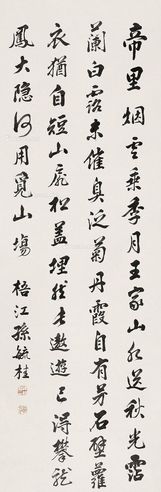 帝里烟雲乘季月王家山水送秋光霑
蘭白露未催臭泛菊丹霞自有芳石壁蘿
衣猶自短山扉松盖埋然長遨遊已得攀龍
鳳大隱何用覓山場 梧江孫毓桂